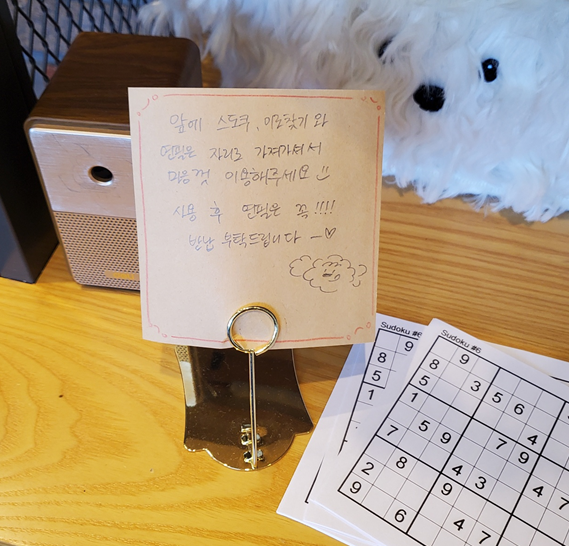 앞에 스도쿠, 미로찾기 와
연필은 자리로 가져가셔서
마음껏 이용해주세요 :)
사용 후 연필은 꼭!!!!
반납 부탁드립니다 ~♡
Sudoku #6
9
8 3 5 6
5 4
1 7 9
5 9
7 4 3
Sudoku #6
9
8
5
1